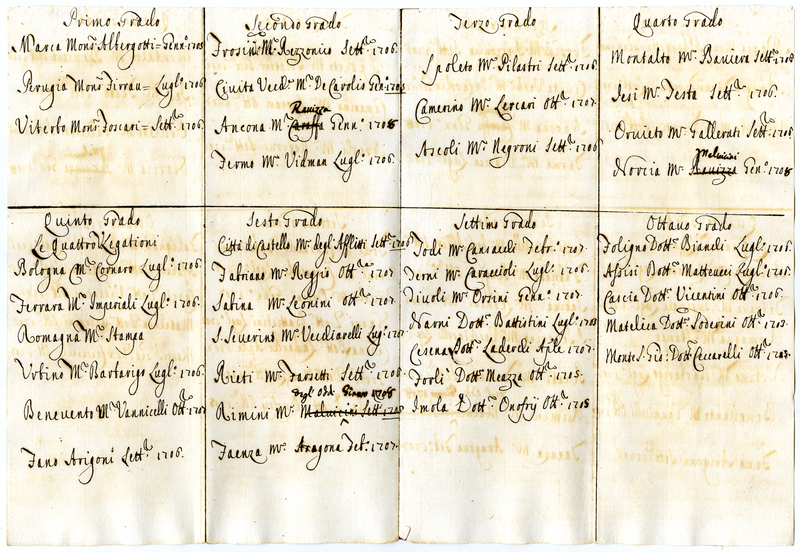 Primo Grado
Marca Monr. Albergotti = Genno. 1705
Perugia Monr. Firrau = Luglo. 1706.
Viterbo Monr. Foscari = Settre. 1706.
Secondo Grado
Frosine. Mr. Rezzonico Settre. 1706.
Civita Vecca. Mr. De Carolis Geno. 1705
Ravizza
Ancona Mr. Caraffa Genno. 1708
Fermo Mr. Vidman Luglo. 1706.
Terzo Grado
Spoleto Mr. Pilastri Settre. 1706
Camerino Mr. Lercari Otte. 1707.
Ascoli Mr. Negroni Settre. 1706
Quarto Grado
Montalto Mr. Baviera Settre. 1706
Jesi Mr. Testa Settre. 1706.
Orvieto Mr. Gallerati Settre. 1706
Melvicini
Norcia Mr. Ravizza Geno. 1708
Quinto Grado
Le Quattro Legationi
Bologna Mr. Cornaro Luglo. 1706.
Ferrara Mr. Imperiali Luglo. 1706.
Romagna Mr. Stampa
Urbino Mr. Barbarigo Luglo. 1706.
Benevento Mr. Vannicelli Otte. 1707
Fano Arigoni Settre. 1706.
Sesto Grado
Città di Castello Mr. degl'Afflitti Settre. 1706
Fabriano Mr. Reggio Otte. 1707.
Sabina Mr. Leonini Otte. 1707.
S. Severino Mr. Vecchiarelli Lugo. 1707
Rieti Mr. Farsetti Settre. 1706
degl' Odd. Genaro 1708
Rimini Mr. Malvicini Settre. 1706
Faenza Mr. Aragona Febo. 1707.
Settimo Grado
Todi Mr. Cansacchi Febro. 1707.
Terni Mr. Caraccioli Luglo. 1706.
Tivoli Mr. Orsini Genno. 1707.
Narni Dottr. Battistini Luglo. 1705
Cesena Dottr. Laderchi Aple. 1707.
Forlì Dottr. Meazza Otte. 1705.
Imola Dottr. Onofrij Otte. 1705
Ottavo Grado
Foligno Dottr. Bianchi Luglo. 1706.
Assisi Dottr. Matteucci Luglo. 1706.
Cascia Dottr. Vicentini Otte. 1706.
Matelica Dottr. Soderini Otte. 1703.
Monte S. Gio: Dottr. Ceccarelli Otte. 1703.